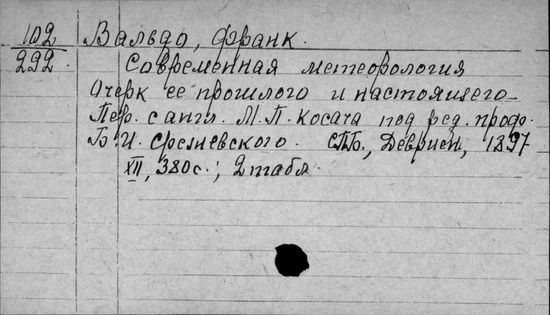 102 Вальдо, Франк.
292. Современная метеорология
Очерк ее прошлого и настоящего
Пер. с англ. М.П. Косача под ред. проф.
Б.И. Срезневского. СПБ., Девриен, 1897
XII, 380 с.; 2 табл.